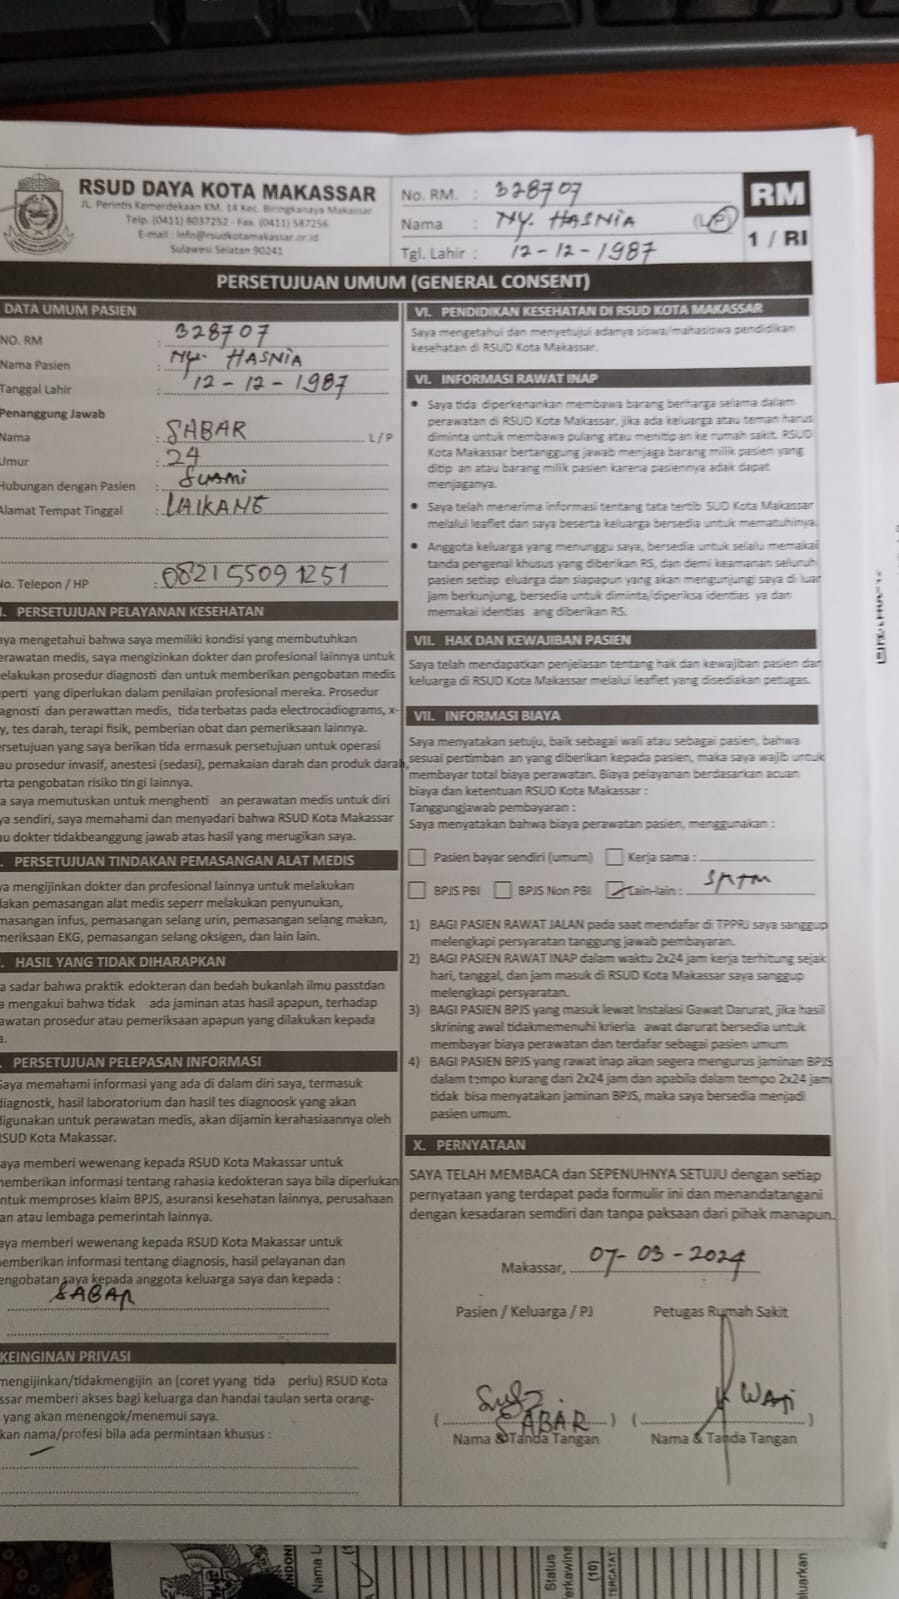 RSUD DAYA KOTA MAKASSAR
JL. Perintis Kemerdekaan KM. 14 Kec. Biringkanaya Makassar
Telp. (0411) 8037252 - Fax. (0411) 587256
E-mail : info@rsudkotamakassar.or.id
Sulawesi Selatan 90241
No. RM. : 328707
Nama : Ny. HASNIA (L/P)
Tgl. Lahir : 12-12-1987
RM
1 / RI
PERSETUJUAN UMUM (GENERAL CONSENT)
DATA UMUM PASIEN
NO. RM : 328707
Nama Pasien : Ny. HASNIA
Tanggal Lahir : 12-12-1987
Penanggung Jawab
Nama : SABAR L/P
Umur : 24
Hubungan dengan Pasien : Suami
Alamat Tempat Tinggal : LAIKANG
No. Telepon / HP : 082155091251
I. PERSETUJUAN PELAYANAN KESEHATAN
aya mengetahui bahwa saya memiliki kondisi yang membutuhkan
erawatan medis, saya mengizinkan dokter dan profesional lainnya untuk
elakukan prosedur diagnosti dan untuk memberikan pengobatan medis
perti yang diperlukan dalam penilaian profesional mereka. Prosedur
agnosti dan perawattan medis, tida terbatas pada electrocadiograms, x-
y, tes darah, terapi fisik, pemberian obat dan pemeriksaan lainnya.
ersetujuan yang saya berikan tida ermasuk persetujuan untuk operasi
au prosedur invasif, anestesi (sedasi), pemakaian darah dan produk darah,
rta pengobatan risiko tin gi lainnya.
a saya memutuskan untuk menghenti an perawatan medis untuk diri
ya sendiri, saya memahami dan menyadari bahwa RSUD Kota Makassar
au dokter tidakbeanggung jawab atas hasil yang merugikan saya.
. PERSETUJUAN TINDAKAN PEMASANGAN ALAT MEDIS
ya mengijinkan dokter dan profesional lainnya untuk melakukan
dakan pemasangan alat medis seperr melakukan penyunukan,
masangan infus, pemasangan selang urin, pemasangan selang makan,
meriksaan EKG, pemasangan selang oksigen, dan lain lain.
. HASIL YANG TIDAK DIHARAPKAN
a sadar bahwa praktik edokteran dan bedah bukanlah ilmu passtdan
a mengakui bahwa tidak ada jaminan atas hasil apapun, terhadap
awatan prosedur atau pemeriksaan apapun yang dilakukan kepada
a.
. PERSETUJUAN PELEPASAN INFORMASI
Saya memahami informasi yang ada di dalam diri saya, termasuk
diagnostk, hasil laboratorium dan hasil tes diagnoosk yang akan
digunakan untuk perawatan medis, akan dijamin kerahasiaannya oleh
RSUD Kota Makassar.
aya memberi wewenang kepada RSUD Kota Makassar untuk
nemberikan informasi tentang rahasia kedokteran saya bila diperlukan
ntuk memproses klaim BPJS, asuransi kesehatan lainnya, perusahaan
an atau lembaga pemerintah lainnya.
aya memberi wewenang kepada RSUD Kota Makassar untuk
emberikan informasi tentang diagnosis, hasil pelayanan dan
engobatan saya kepada anggota keluarga saya dan kepada :
SABAR
KEINGINAN PRIVASI
mengijinkan/tidakmengijin an (coret yyang tida perlu) RSUD Kota
ssar memberi akses bagi keluarga dan handai taulan serta orang-
yang akan menengok/menemui saya.
kan nama/profesi bila ada permintaan khusus :
VI. PENDIDIKAN KESEHATAN DI RSUD KOTA MAKASSAR
Saya mengetahui dan menyetujui adanya siswa/mahasiswa pendidikan
kesehatan di RSUD Kota Makassar.
VI. INFORMASI RAWAT INAP
• Saya tida diperkenankan membawa barang berharga selama dalam
perawatan di RSUD Kota Makassar, jika ada keluarga atau teman harus
diminta untuk membawa pulang atau menitip an ke rumah sakit. RSUD
Kota Makassar bertanggung jawab menjaga barang milik pasien yang
ditip an atau barang milik pasien karena pasiennya adak dapat
menjaganya.
• Saya telah menerima informasi tentang tata tertib SUD Kota Makassar
melalui leaflet dan saya beserta keluarga bersedia untuk mematuhinya.
• Anggota keluarga yang menunggu saya, bersedia untuk selalu memakai
tanda pengenal khusus yang diberikan RS, dan demi keamanan seluruh
pasien setiap eluarga dan siapapun yang akan mengunjungi saya di luar
jam berkunjung, bersedia untuk diminta/diperiksa identias ya dan
memakai identias ang diberikan RS.
VII. HAK DAN KEWAJIBAN PASIEN
Saya telah mendapatkan penjelasan tentang hak dan kewajiban pasien dan
keluarga di RSUD Kota Makassar melalui leaflet yang disediakan petugas.
VII. INFORMASI BIAYA
Saya menyatakan setuju, baik sebagai wali atau sebagai pasien, bahwa
sesuai pertimban an yang diberikan kepada pasien, maka saya wajib untuk
membayar total biaya perawatan. Biaya pelayanan berdasarkan acuan
biaya dan ketentuan RSUD Kota Makassar :
Tanggungjawab pembayaran :
Saya menyatakan bahwa biaya perawatan pasien, menggunakan :
Pasien bayar sendiri (umum) Kerja sama :
BPJS PBI BPJS Non PBI Lain-lain : SKTM
1) BAGI PASIEN RAWAT JALAN pada saat mendafar di TPPRJ saya sanggup
melengkapi persyaratan tanggung jawab pembayaran.
2) BAGI PASIEN RAWAT INAP dalam waktu 2x24 jam kerja terhitung sejak
hari, tanggal, dan jam masuk di RSUD Kota Makassar saya sanggup
melengkapi persyaratan.
3) BAGI PASIEN BPJS yang masuk lewat Instalasi Gawat Darurat, jika hasil
skrining awal tidakmemenuhi krieria awat darurat bersedia untuk
membayar biaya perawatan dan terdafar sebagai pasien umum
4) BAGI PASIEN BPJS yang rawat inap akan segera mengurus jaminan BPJS
dalam tempo kurang dari 2x24 jam dan apabila dalam tempo 2x24 jam
tidak bisa menyatakan jaminan BPJS, maka saya bersedia menjadi
pasien umum.
X. PERNYATAAN
SAYA TELAH MEMBACA dan SEPENUHNYA SETUJU dengan setiap
pernyataan yang terdapat pada formulir ini dan menandatangani
dengan kesadaran semdiri dan tanpa paksaan dari pihak manapun.
Makassar, 07-03-2024
Pasien / Keluarga / PJ Petugas Rumah Sakit
( SABAR ) ( WATI )
Nama & Tanda Tangan Nama & Tanda Tangan
NDON
Nama L
Status
erkawina
(10)
TERCATAT
eluarkan